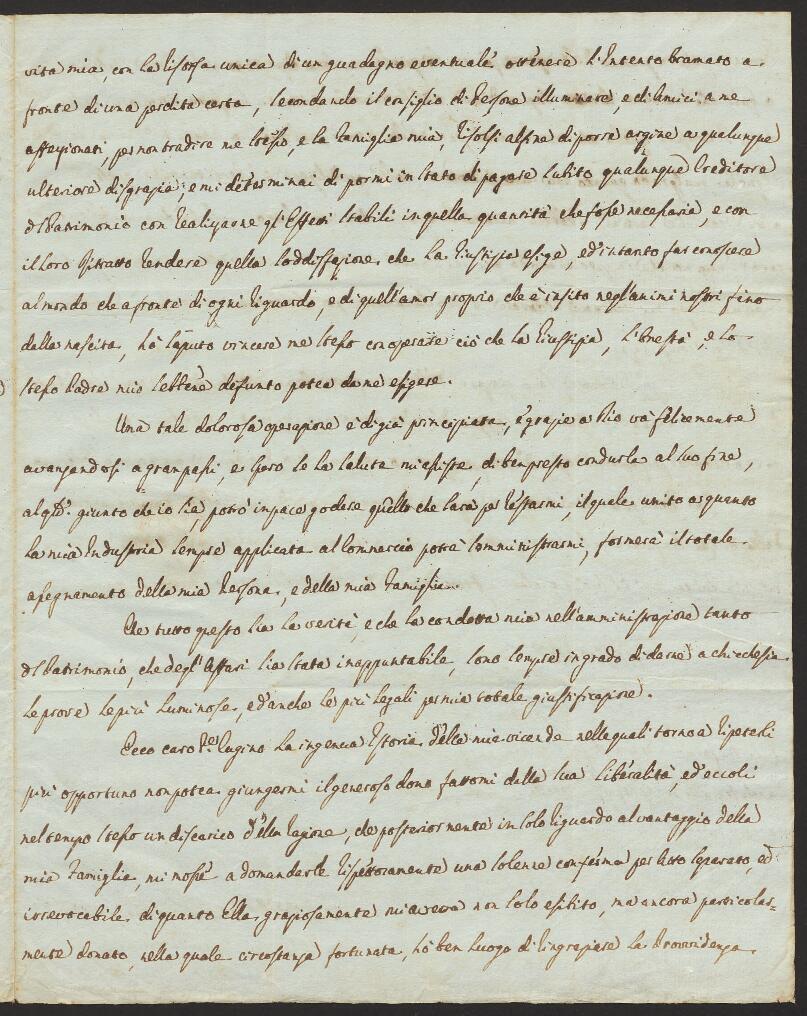 vita mia, con la risorsa unica di un guadagno eventuale ottenere l'Intento bramato a
fronte di una perdita certa, secondando il consiglio di Persone illuminate, e di Amici a me
affezionati, per non tradire me stesso, e la Famiglia mia, risolsi alfine di porre argine a qualunque
ulteriore disgrazia, e mi determinai di pormi in stato di pagare subito qualunque Creditore
del Patrimonio con realizzarne gl'Effetti stabili in quella quantità che fosse necessaria, e con
il loro Ritratto rendere quella soddisfazione, che la Giustizia esige, ed intanto far conoscere
al mondo che a fronte di ogni riguardo, e di quell'amor proprio che è insito negl'animi nostri fino
dalla nascita, hò saputo vincere me stesso con operare ciò che la Giustizia, l'Onestà, e lo
stesso Padre mio bench'è defunto potea da me esigere.
Una tale dolorosa operazione è di già principiata, e grazie a Dio và felicemente
avanzandosi a gran passi, e spero se la salute mi assiste, di ben presto condurla al suo fine,
al qle. giunto che io sia, potrò in pace godere quello che sarà per restarmi, il quale unito a quanto
la mia Industria sempre applicata al Commercio potrà somministrarmi, formerà il totale
assegnamento della mia Persona, e della mia Famiglia.
Che tutto questo sia la verità, e che la condotta mia nell'amministrazione tanto
del Patrimonio, che degl'Affari sia stata inappuntabile, sono sempre in grado di darne a chicchesia
le prove le più luminose, ed anche le più legali per mia totale giustificazione.
Ecco caro Cugino la ingenua Istoria delle mie vicende nelle quali torno a ripeterli
più opportuno non potea giungermi il generoso dono fattomi dalla sua liberalità, ed eccoli
nel tempo stesso un discarico della ragione, che posteriormente in solo riguardo al vantaggio della
mia Famiglia, mi mosse a domandarle rispettosamente una solenne conferma per Atto separato, ed
irrevocabile di quanto Ella graziosamente mi aveva non solo esibito, ma ancora particolar=
mente donato, nella quale circostanza fortunata, hò ben luogo di ringraziare la Provvidenza